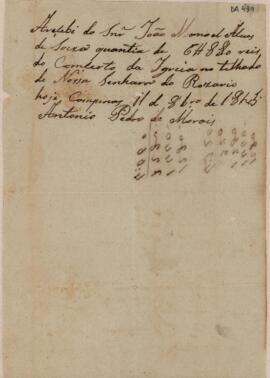 DA 499
Resebi do Snr João Manoel Alves
de Souza quantia de 6H880 reis
do Comserto da Igreia no telhado
de Nossa Senhara do Rozario
hoje Campinas 11 d 8bro de 1845
Antonio Pedro de Morais